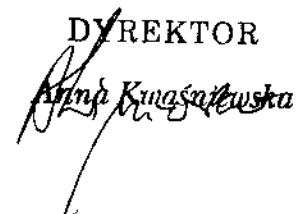 DYREKTOR
Anna Kwaśniewska